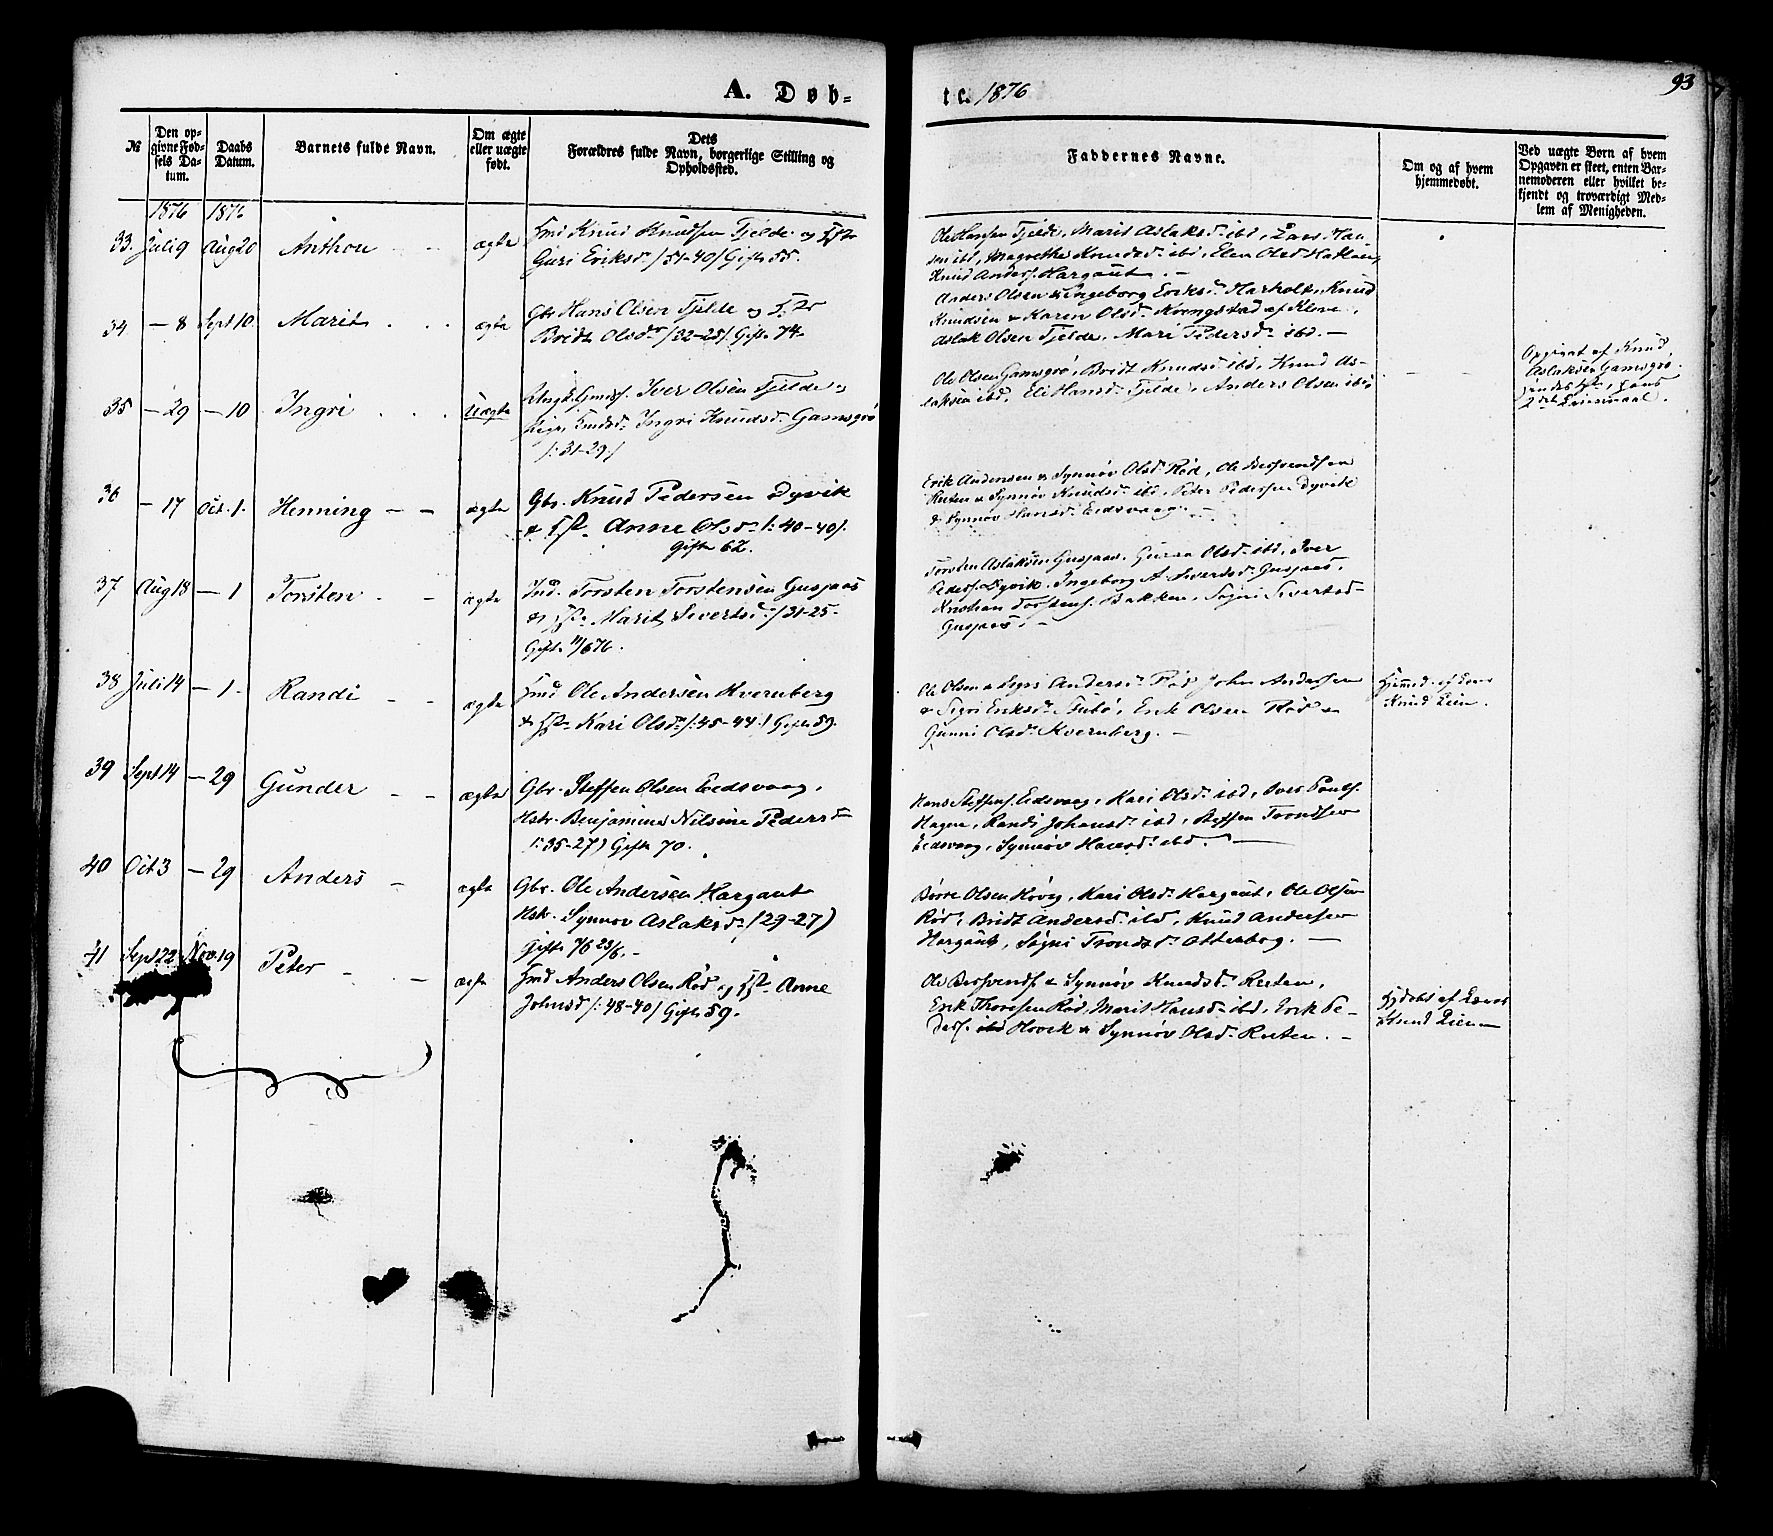 93
A. Døb-
te. 1876
№
Den op-
givne Fød-
sels Da-
tum.
Daabs
Datum.
Barnets fulde Navn.
Om ægte
eller uægte
født.
Dets
Forældres fulde Navn, borgerlige Stilling og
Opholdssted.
Faddernes Navne.
Om og af hvem
hjemmedøbt.
Ved uægte Børn af hvem
Opgaven er skeet, enten Bar-
nemoderen eller hvilket be-
kjendt og troværdigt Med-
lem af Menigheden.
1876 1876
33. Juli 9 Aug 20 Anthon ægte
Knud Knudsen Tjelde og
Guri Eriksd: /51-40/ Gift 55.
Ole Hansen Tjelde, Marit Aslaksd. ibd, Lars Han-
sen ibd, Magrethe Knudsd. ibd, Elen Olsd
Knud Anders. Hargaut. —
34 — 8 Sept 10 Marit ægte
Gbr Hans Olsen Tjelde og
Bridt Olsdr /32-25/. Gift 74
Anders Olsen & Ingeborg Eriksd. Knud
Knudsen & Karen Olsd. af Kleve,
Aslak Olsen Tjelde, Mari Pedersd. ibd. —
35 — 29 — 10 Ingri Uægte
Iver Olsen Tjelde,
Ingri Knudsd. Gamsgrø
/: 31-29/
Ole Olsen Gamsgrø, Bridt Knudsd ibd, Knud As-
laksen ibd, Eli Hansd. Tjelde, Anders Olsen ibd
Opgivet af Knud
Aslaksen Gamsgrø.
hans
2det Leiermaal.
36 — 17 Oct. 1. Henning — — ægte
Gbr. Knud Pedersen Dyvik
& Anne Olsdr /: 40-40/.
Gift 62.
Erik Andersen & Synnøv Olsd. Rød, Ole
& Synnøv Knudsd. ibd, Peter Pedersen Dyvik
& Synnøv Hansd. Eidsvaag. —
37 Aug 18 — 1 Torsten ægte
Ind. Torsten Torstensen Gusjaas
& Marit Sivertsd. /31-25-
Gift 11/6 76.
Torsten Aslaksen Gusjaas, Olsd. ibd, Iver
Peders. Dyvik, Ingeborg A. Sivertsd. Gusjaas,
Kristian Torstens. Bakken, Sigri Sivertsd-
Gusjaas. —
38 Juli 14 — 1 - Randi ægte
Ole Andersen Kvernberg
& Kari Olsd. /: 45-44./ Gift 59.
Ole Olsen & Sigri Andersd. Rød, John Andersen
& Sigri Eriksd. Erik Olsen Rød &
Gunni Olsd. Kvernberg. —
Hjemmed. af
Knud Lien.
39 Sept 14 — 29 Gunder ægte
Gbr. Steffen Olsen Eidsvaag,
Hstr. Benjamine Nilsine Pedersd
/: 35-27) Gift 70.
Hans Steffens. Eidsvaag, Kari Olsd. ibd, Iver
Hagen, Randi Johansd. ibd, Steffen Trondsen
Eidsvaag, Synnøv Hansd. ibd. —
40 Oct 3 — 29 Anders — ægte
Gbr. Ole Andersen Hargaut
Hstr. Synnøv Aslaksd. (29-27)
Gift 76 23/6. -
Børre Olsen Høvig, Kari Olsd. Hargaut, Ole Olsen
Rød, Bridt Andersd. ibd, Knud Andersen
Hargaut, Sigri Trondsd. Otterbog. —
41 Sept 22 Nov. 19 Peter ægte
Anders Olsen Rød og Anne
Johnsd /: 48-40/ Gift 59.
Ole & Synnøv Knudsd.
Erik Thoresen Rød, Marit Hansd. ibd, Erik Pe-
ders. Hovik & Synnøv Olsd. —
Hjdøbt af
Knud Lien —